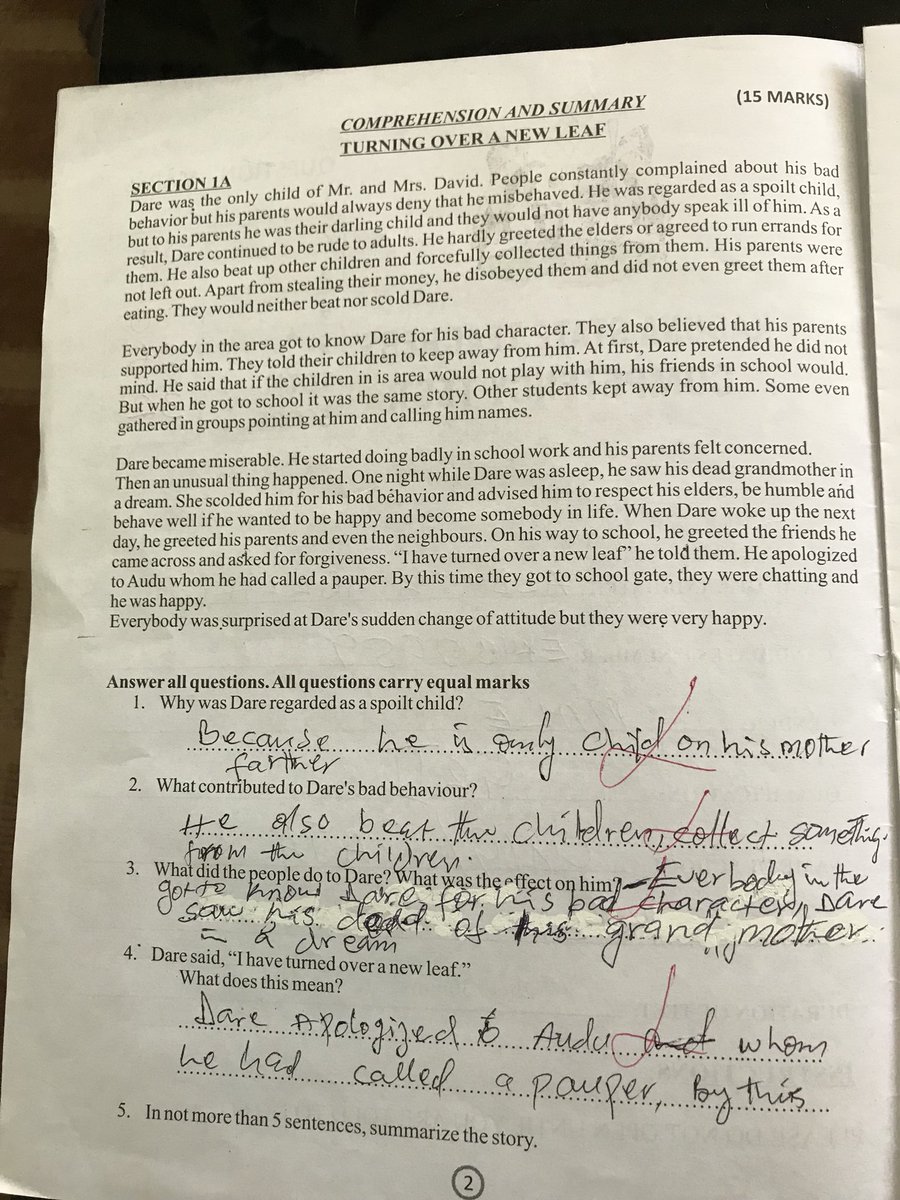 COMPREHENSION AND SUMMARY
(15 MARKS)
TURNING OVER A NEW LEAF
SECTION 1A
Dare was the only child of Mr. and Mrs. David. People constantly complained about his bad
behavior but his parents would always deny that he misbehaved. He was regarded as a spoilt child,
but to his parents he was their darling child and they would not have anybody speak ill of him. As a
result, Dare continued to be rude to adults. He hardly greeted the elders or agreed to run errands for
them. He also beat up other children and forcefully collected things from them. His parents were
not left out. Apart from stealing their money, he disobeyed them and did not even greet them after
eating. They would neither beat nor scold Dare.
Everybody in the area got to know Dare for his bad character. They also believed that his parents
supported him. They told their children to keep away from him. At first, Dare pretended he did not
mind. He said that if the children in is area would not play with him, his friends in school would.
But when he got to school it was the same story. Other students kept away from him. Some even
gathered in groups pointing at him and calling him names.
Dare became miserable. He started doing badly in school work and his parents felt concerned.
Then an unusual thing happened. One night while Dare was asleep, he saw his dead grandmother in
a dream. She scolded him for his bad behavior and advised him to respect his elders, be humble and
behave well if he wanted to be happy and become somebody in life. When Dare woke up the next
day, he greeted his parents and even the neighbours. On his way to school, he greeted the friends he
came across and asked for forgiveness. “I have turned over a new leaf” he told them. He apologized
to Audu whom he had called a pauper. By this time they got to school gate, they were chatting and
he was happy.
Everybody was surprised at Dare's sudden change of attitude but they were very happy.
Answer all questions. All questions carry equal marks
1. Why was Dare regarded as a spoilt child?
Because he is only child on his mother
farther
2. What contributed to Dare's bad behaviour?
He also beat the children, collect something
from the children.
3. What did the people do to Dare? What was the effect on him? Everbody in the
got to know Dare for his bad character, Dare
saw his dead of his grand mother
in a dream
4. Dare said, “I have turned over a new leaf.”
What does this mean?
Dare Apologized to Audu whom
he had called a pauper, By this
5. In not more than 5 sentences, summarize the story.
2